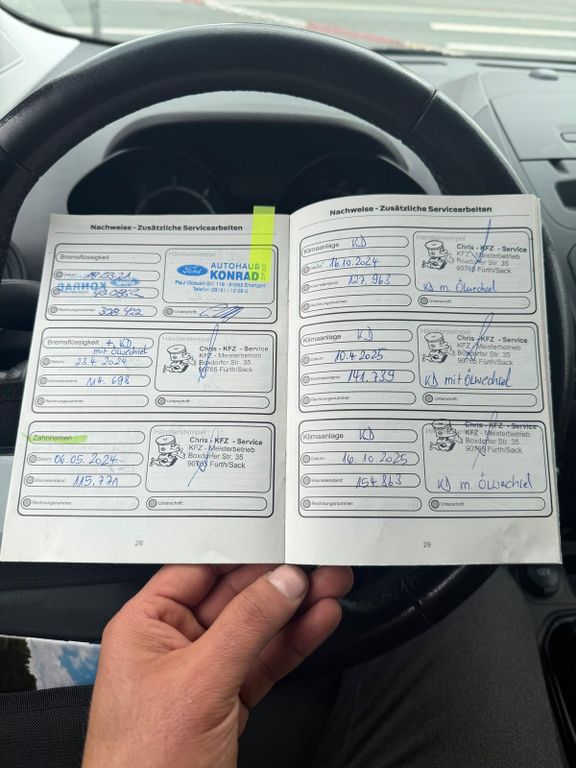 Nachweise - Zusätzliche Servicearbeiten
Bremsflüssigkeit
Händlerstempel
Datum:
Ford AUTOHAUS
KONRAD
Telefon
Rechnungsnummer:
Unterschrift:
Bremsflüssigkeit + KD
mit Ölwechsel
Datum: 23.4.2024
Kilometerstand: 114.698
Rechnungsnummer:
Händlerstempel
Chris - KFZ - Service
KFZ - Meisterbetrieb
Boxdorfer Str. 35
90765 Fürth/Sack
Unterschrift:
Zahnriemen
Datum: 06.05.2024
Kilometerstand: 115.771
Rechnungsnummer:
Händlerstempel
Chris - KFZ - Service
KFZ - Meisterbetrieb
Boxdorfer Str. 35
90765 Fürth/Sack
Unterschrift:
28
Nachweise - Zusätzliche Servicearbeiten
Klimaanlage KD
Datum: 16.10.2024
Kilometerstand: 127.963
Rechnungsnummer:
Händlerstempel
Chris - KFZ - Service
KFZ - Meisterbetrieb
Boxdorfer Str. 35
90765 Fürth/Sack
KD m. Ölwechsel
Unterschrift:
Klimaanlage KD
Datum: 10.4.2025
Kilometerstand: 141.739
Rechnungsnummer:
Händlerstempel
Chris - KFZ - Service
KFZ - Meisterbetrieb
Boxdorfer Str. 35
90765 Fürth/Sack
KD mit Ölwechsel
Unterschrift:
Klimaanlage KD
Datum: 16.10.2025
Kilometerstand: 154863
Rechnungsnummer:
Händlerstempel
Chris - KFZ - Service
KFZ - Meisterbetrieb
Boxdorfer Str. 35
90765 Fürth/Sack
KD m. Ölwechsel
Unterschrift:
29